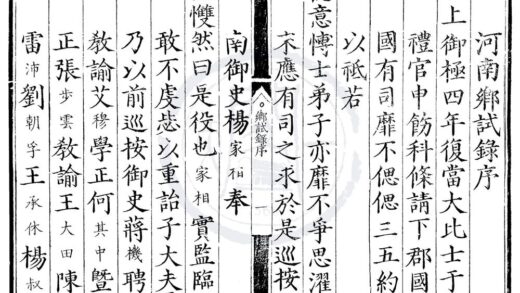 河南鄉試錄序
上御極四年復當大比士于
禮官申飭科條請下郡國
國有司靡不偲偲三五約
以祗若
意愽士弟子亦靡不爭思濯
應有司之求於是巡按
鄉試錄序 一
南御史楊家相奉
戄然曰是役也家相實監臨
敢不虔毖以重詒子大夫
乃以前巡按御史蔣機聘
教諭艾穆學正何其中暨
正張步雲教諭王大田陳
雷沛劉朝孚王承休楊叔